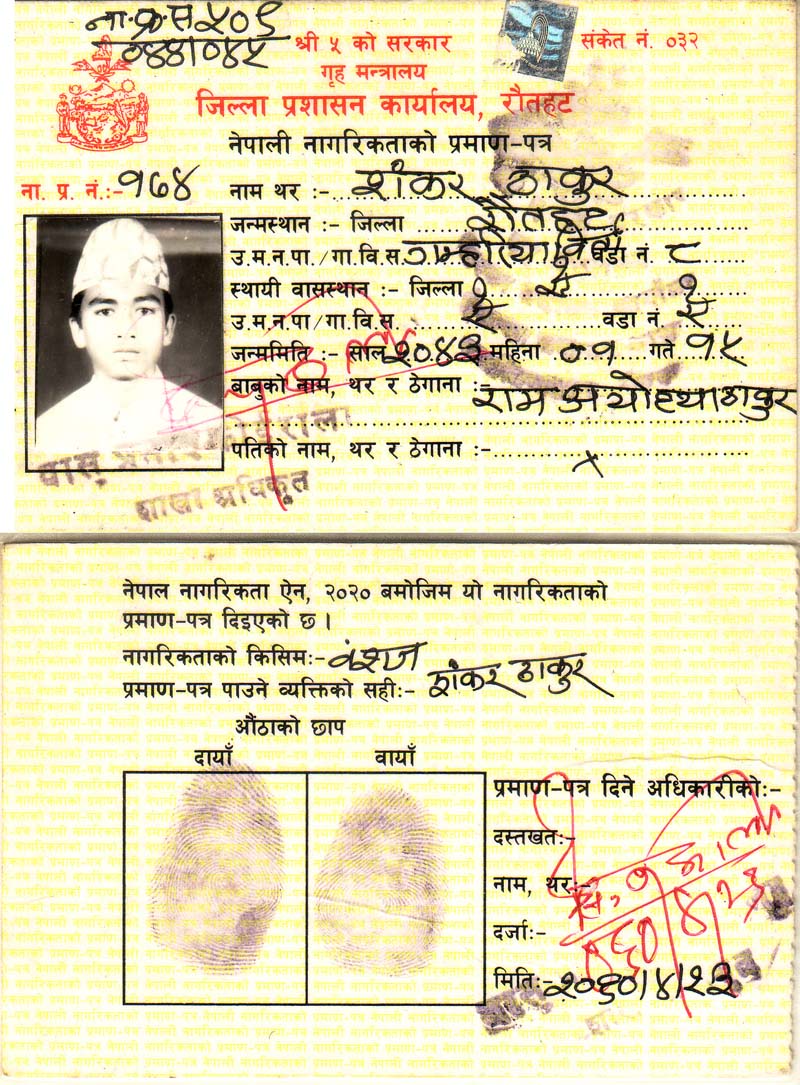 ना.क्र.सं ५०९
०४४१०४५
श्री ५ को सरकार
संकेत नं. ०३२
गृह मन्त्रालय
जिल्ला प्रशासन कार्यालय, रौतहट
नेपाली नागरिकताको प्रमाण-पत्र
ना. प्र. नं.:- १७४
नाम थर :- शंकर ठाकुर
जन्मस्थान :- जिल्ला रौतहट
उ.म.न.पा./गा.वि.स. वडा नं. ८
स्थायी वासस्थान :- जिल्ला ऐ
उ.म.न.पा/गा.वि.स. ऐ वडा नं. ऐ
जन्ममिति :- साल २०४३ महिना ०१ गते १५
बाबुको नाम, थर र ठेगाना :- राम अयोध्या ठाकुर
पतिको नाम, थर र ठेगाना :- x
शाखा अधिकृत
नेपाल नागरिकता ऐन, २०२० बमोजिम यो नागरिकताको
प्रमाण-पत्र दिइएको छ ।
नागरिकताको किसिम:- वंशज
प्रमाण-पत्र पाउने व्यक्तिको सही:- शंकर ठाकुर
औंठाको छाप
दायाँ वायाँ
प्रमाण-पत्र दिने अधिकारीको:-
दस्तखत:-
नाम, थर:-
दर्जा:-
मिति:- २०६०/४/२३